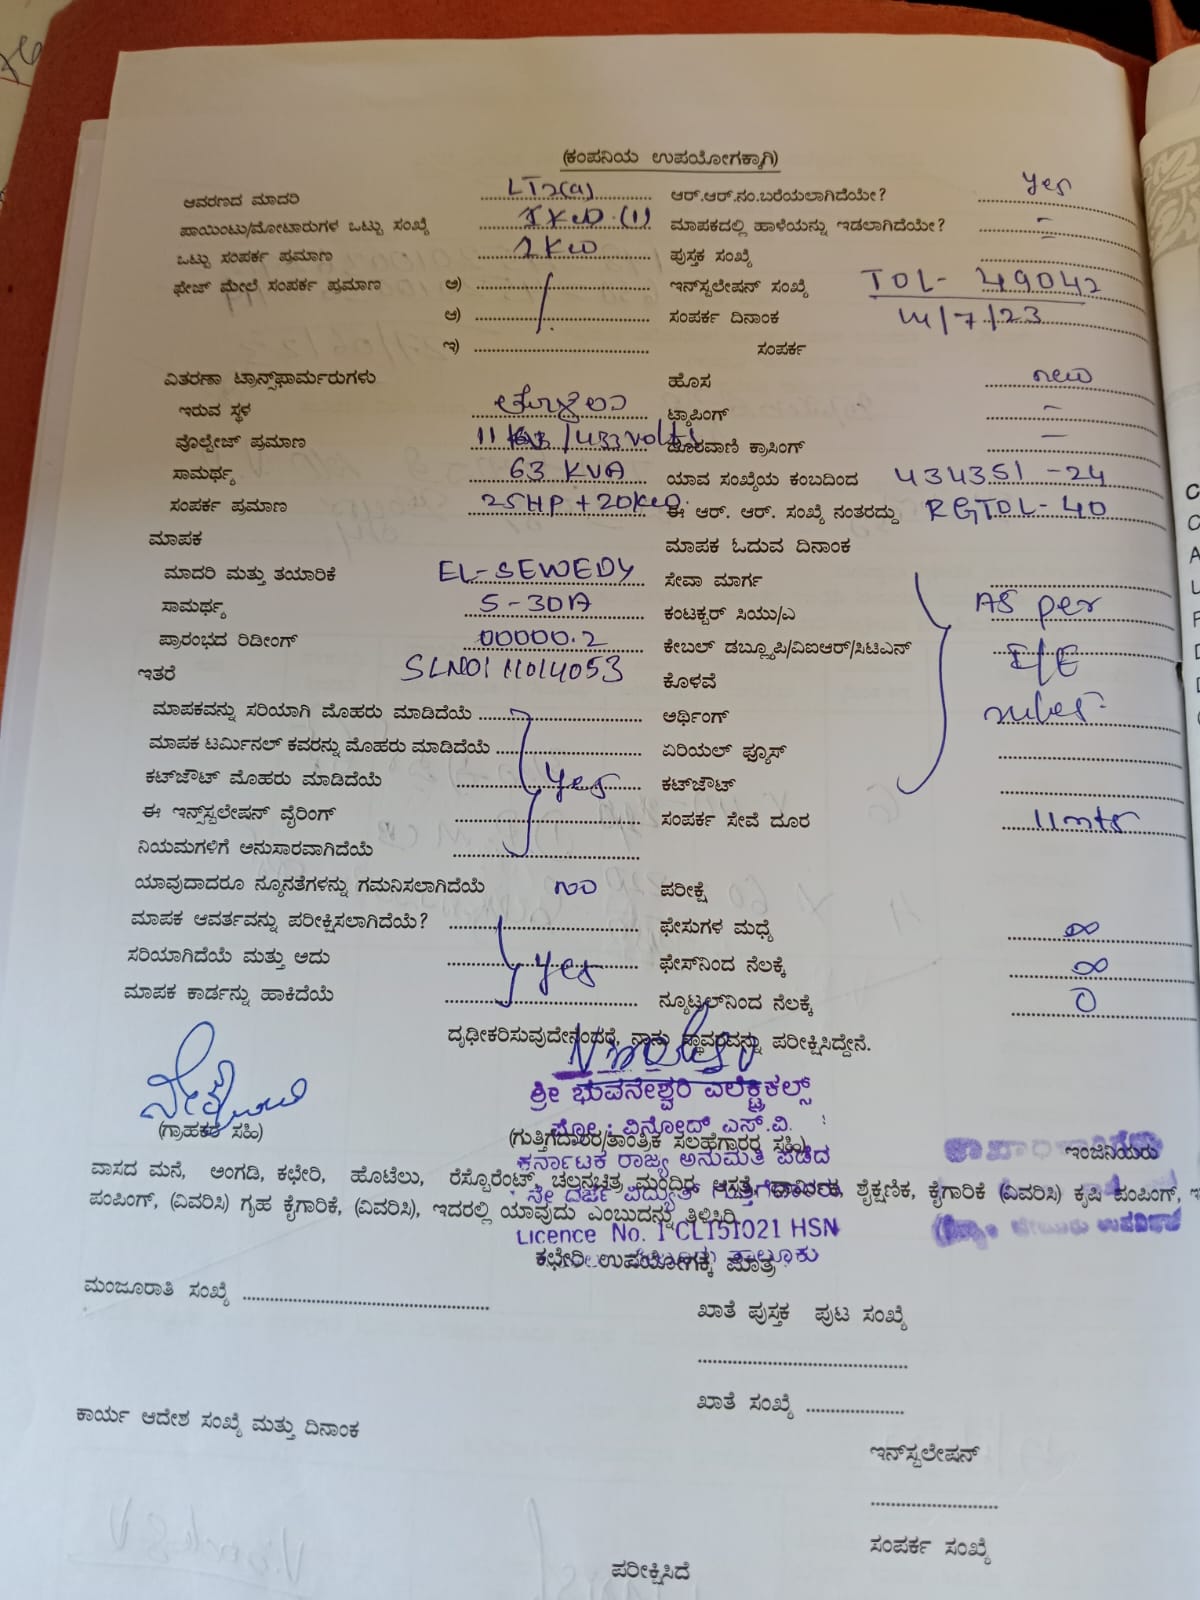 (ಕಂಪನಿಯ ಉಪಯೋಗಕ್ಕಾಗಿ)
ಆವರಣದ ಮಾದರಿ LT2(a) ಆರ್.ಆರ್.ನಂ.ಬರೆಯಲಾಗಿದೆಯೇ? yes
ಪಾಯಿಂಟು/ಮೋಟಾರುಗಳ ಒಟ್ಟು ಸಂಖ್ಯೆ 1KW (1) ಮಾಪಕದಲ್ಲಿ ಹಾಳೆಯನ್ನು ಇಡಲಾಗಿದೆಯೇ? -
ಒಟ್ಟು ಸಂಪರ್ಕ ಪ್ರಮಾಣ 1KW ಪುಸ್ತಕ ಸಂಖ್ಯೆ -
ಫೇಜ್ ಮೇಲೆ ಸಂಪರ್ಕ ಪ್ರಮಾಣ ಅ) ಇನ್‌ಸ್ಟಲೇಷನ್ ಸಂಖ್ಯೆ TOL- 49042
ಆ) ಸಂಪರ್ಕ ದಿನಾಂಕ /7/23
ಇ) ಸಂಪರ್ಕ
ವಿತರಣಾ ಟ್ರಾನ್ಸ್‌ಫಾರ್ಮರುಗಳು ಹೊಸ new
ಇರುವ ಸ್ಥಳ ಟ್ಯಾಪಿಂಗ್ -
ವೊಲ್ಟೇಜ್ ಪ್ರಮಾಣ 11 /433 volts ದೂರವಾಣಿ ಕ್ರಾಸಿಂಗ್ -
ಸಾಮರ್ಥ್ಯ 63 KVA ಯಾವ ಸಂಖ್ಯೆಯ ಕಂಬದಿಂದ 434351 -24
ಸಂಪರ್ಕ ಪ್ರಮಾಣ 25HP + 20KW. ಈ ಆರ್. ಆರ್. ಸಂಖ್ಯೆ ನಂತರದ್ದು RGTOL- 40
ಮಾಪಕ ಮಾಪಕ ಓದುವ ದಿನಾಂಕ
ಮಾದರಿ ಮತ್ತು ತಯಾರಿಕೆ EL-SEWEDY ಸೇವಾ ಮಾರ್ಗ
ಸಾಮರ್ಥ್ಯ 5-30A ಕಂಟಕ್ಟರ್ ಸಿಯು/ಎ As per
ಪ್ರಾರಂಭದ ರಿಡೀಂಗ್ 00000.2 ಕೇಬಲ್ ಡಬ್ಲ್ಯೂಪಿ/ವಿಐಆರ್/ಸಿಟಿಎನ್ I/E
ಇತರೆ SLNO: 11014053 ಕೊಳವೆ
ಮಾಪಕವನ್ನು ಸರಿಯಾಗಿ ಮೊಹರು ಮಾಡಿದೆಯೆ ಅರ್ಥಿಂಗ್ rules
ಮಾಪಕ ಟರ್ಮಿನಲ್ ಕವರನ್ನು ಮೊಹರು ಮಾಡಿದೆಯೆ ಏರಿಯಲ್ ಫ್ಯೂಸ್
ಕಟ್‌ಔಟ್ ಮೊಹರು ಮಾಡಿದೆಯೆ yes ಕಟ್‌ಔಟ್
ಈ ಇನ್‌ಸ್ಟಲೇಷನ್ ವೈರಿಂಗ್ ಸಂಪರ್ಕ ಸೇವೆ ದೂರ 11mts
ನಿಯಮಗಳಿಗೆ ಅನುಸಾರವಾಗಿದೆಯೆ
ಯಾವುದಾದರೂ ನ್ಯೂನತೆಗಳನ್ನು ಗಮನಿಸಲಾಗಿದೆಯೆ no ಪರೀಕ್ಷೆ
ಮಾಪಕ ಆವರ್ತವನ್ನು ಪರೀಕ್ಷಿಸಲಾಗಿದೆಯೆ? ಫೇಸುಗಳ ಮಧ್ಯೆ ∞
ಸರಿಯಾಗಿದೆಯೆ ಮತ್ತು ಅದು yes ಫೇಸ್‌ನಿಂದ ನೆಲಕ್ಕೆ ∞
ಮಾಪಕ ಕಾರ್ಡನ್ನು ಹಾಕಿದೆಯೆ ನ್ಯೂಟ್ರಲ್‌ನಿಂದ ನೆಲಕ್ಕೆ 0
ದೃಢೀಕರಿಸುವುದೇನಂದರೆ, ನಾನು ಸ್ಥಾವರವನ್ನು ಪರೀಕ್ಷಿಸಿದ್ದೇನೆ.
ಶ್ರೀ ಭುವನೇಶ್ವರಿ ಎಲೆಕ್ಟ್ರಿಕಲ್ಸ್
ಪ್ರೋ : ವಿನೋದ್ ಎಸ್.ವಿ.
(ಗ್ರಾಹಕರ ಸಹಿ) (ಗುತ್ತಿಗೆದಾರರ/ತಾಂತ್ರಿಕ ಸಲಹೆಗಾರರ ಸಹಿ) ಇಂಜಿನಿಯರು
ಕರ್ನಾಟಕ ರಾಜ್ಯ ಅನುಮತಿ ಪಡೆದ
ವಾಸದ ಮನೆ, ಅಂಗಡಿ, ಕಛೇರಿ, ಹೊಟೆಲು, ರೆಸ್ಟೊರೆಂಟ್, ಚಲನಚಿತ್ರ ಮಂದಿರ, ಆಸ್ಪತ್ರೆ, ಶೈಕ್ಷಣಿಕ, ಕೈಗಾರಿಕೆ (ವಿವರಿಸಿ) ಕೃಷಿ ಪಂಪಿಂಗ್,
ಪಂಪಿಂಗ್, (ವಿವರಿಸಿ) ಗೃಹ ಕೈಗಾರಿಕೆ, (ವಿವರಿಸಿ), ಇದರಲ್ಲಿ ಯಾವುದು ಎಂಬುದನ್ನು ತಿಳಿಸಿರಿ.
Licence No. 1 CL151021 HSN
ಕಛೇರಿ ಉಪಯೋಗಕ್ಕೆ ಮಾತ್ರ
ಮಂಜೂರಾತಿ ಸಂಖ್ಯೆ ಖಾತೆ ಪುಸ್ತಕ ಪುಟ ಸಂಖ್ಯೆ
ಖಾತೆ ಸಂಖ್ಯೆ
ಕಾರ್ಯ ಆದೇಶ ಸಂಖ್ಯೆ ಮತ್ತು ದಿನಾಂಕ
ಇನ್‌ಸ್ಟಲೇಷನ್
ಸಂಪರ್ಕ ಸಂಖ್ಯೆ
ಪರೀಕ್ಷಿಸಿದೆ